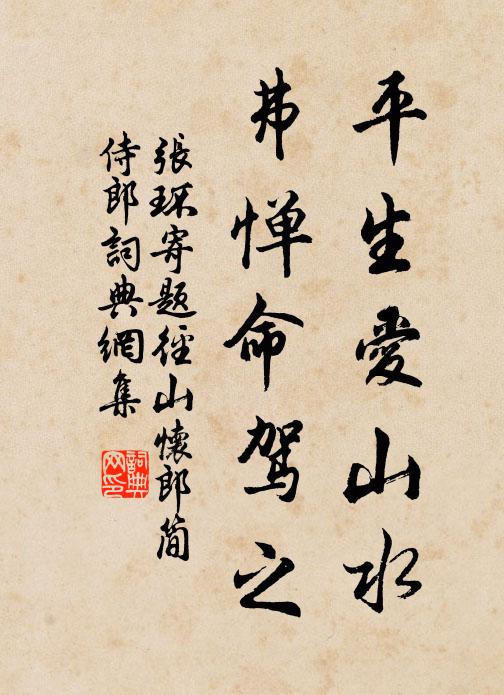 平生愛山水
弗惮命駕之
張環寄題徑山懷郎简
侍郎詞典網集
詞典网印